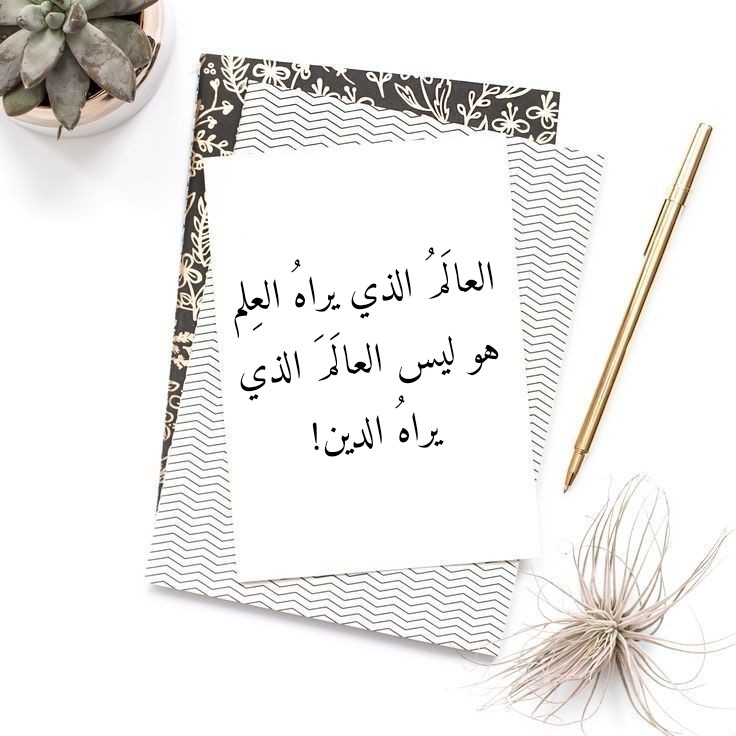 العالَمُ الذي يراهُ العِلم
هو ليس العالَمَ الذي
يراهُ الدين!